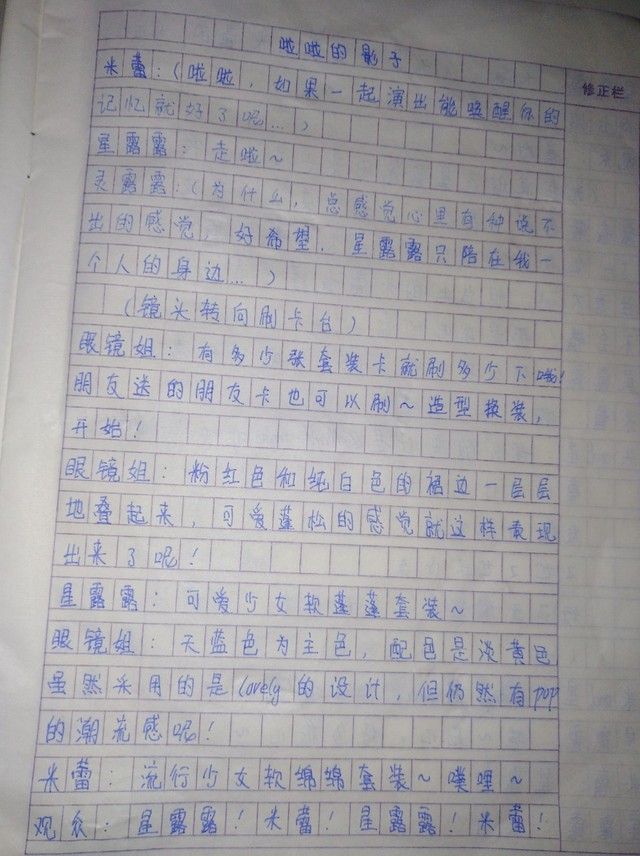 啦啦的影子
修正栏
米蕾：（啦啦，如果一起演出能唤醒你的
记忆就好了呢…）
星露露：走啦~
灵露露：（为什么，总感觉心里有种说不
出的感觉，好希望，星露露只陪在我一
个人的身边…）
（镜头转向刷卡台）
眼镜姐：有多少张套装卡就刷多少下哟！
朋友送的朋友卡也可以刷~造型换装，
开始！
眼镜姐：粉红色和纯白色的裙边一层层
地叠起来，可爱蓬松的感觉就这样表现
出来了呢！
星露露：可爱少女软蓬蓬套装~
眼镜姐：天蓝色为主色，配色是淡黄色
虽然采用的是lovely的设计，但仍然有pop
的潮流感呢！
米蕾：流行少女软绵绵套装~噗哩~
观众：星露露！米蕾！星露露！米蕾！